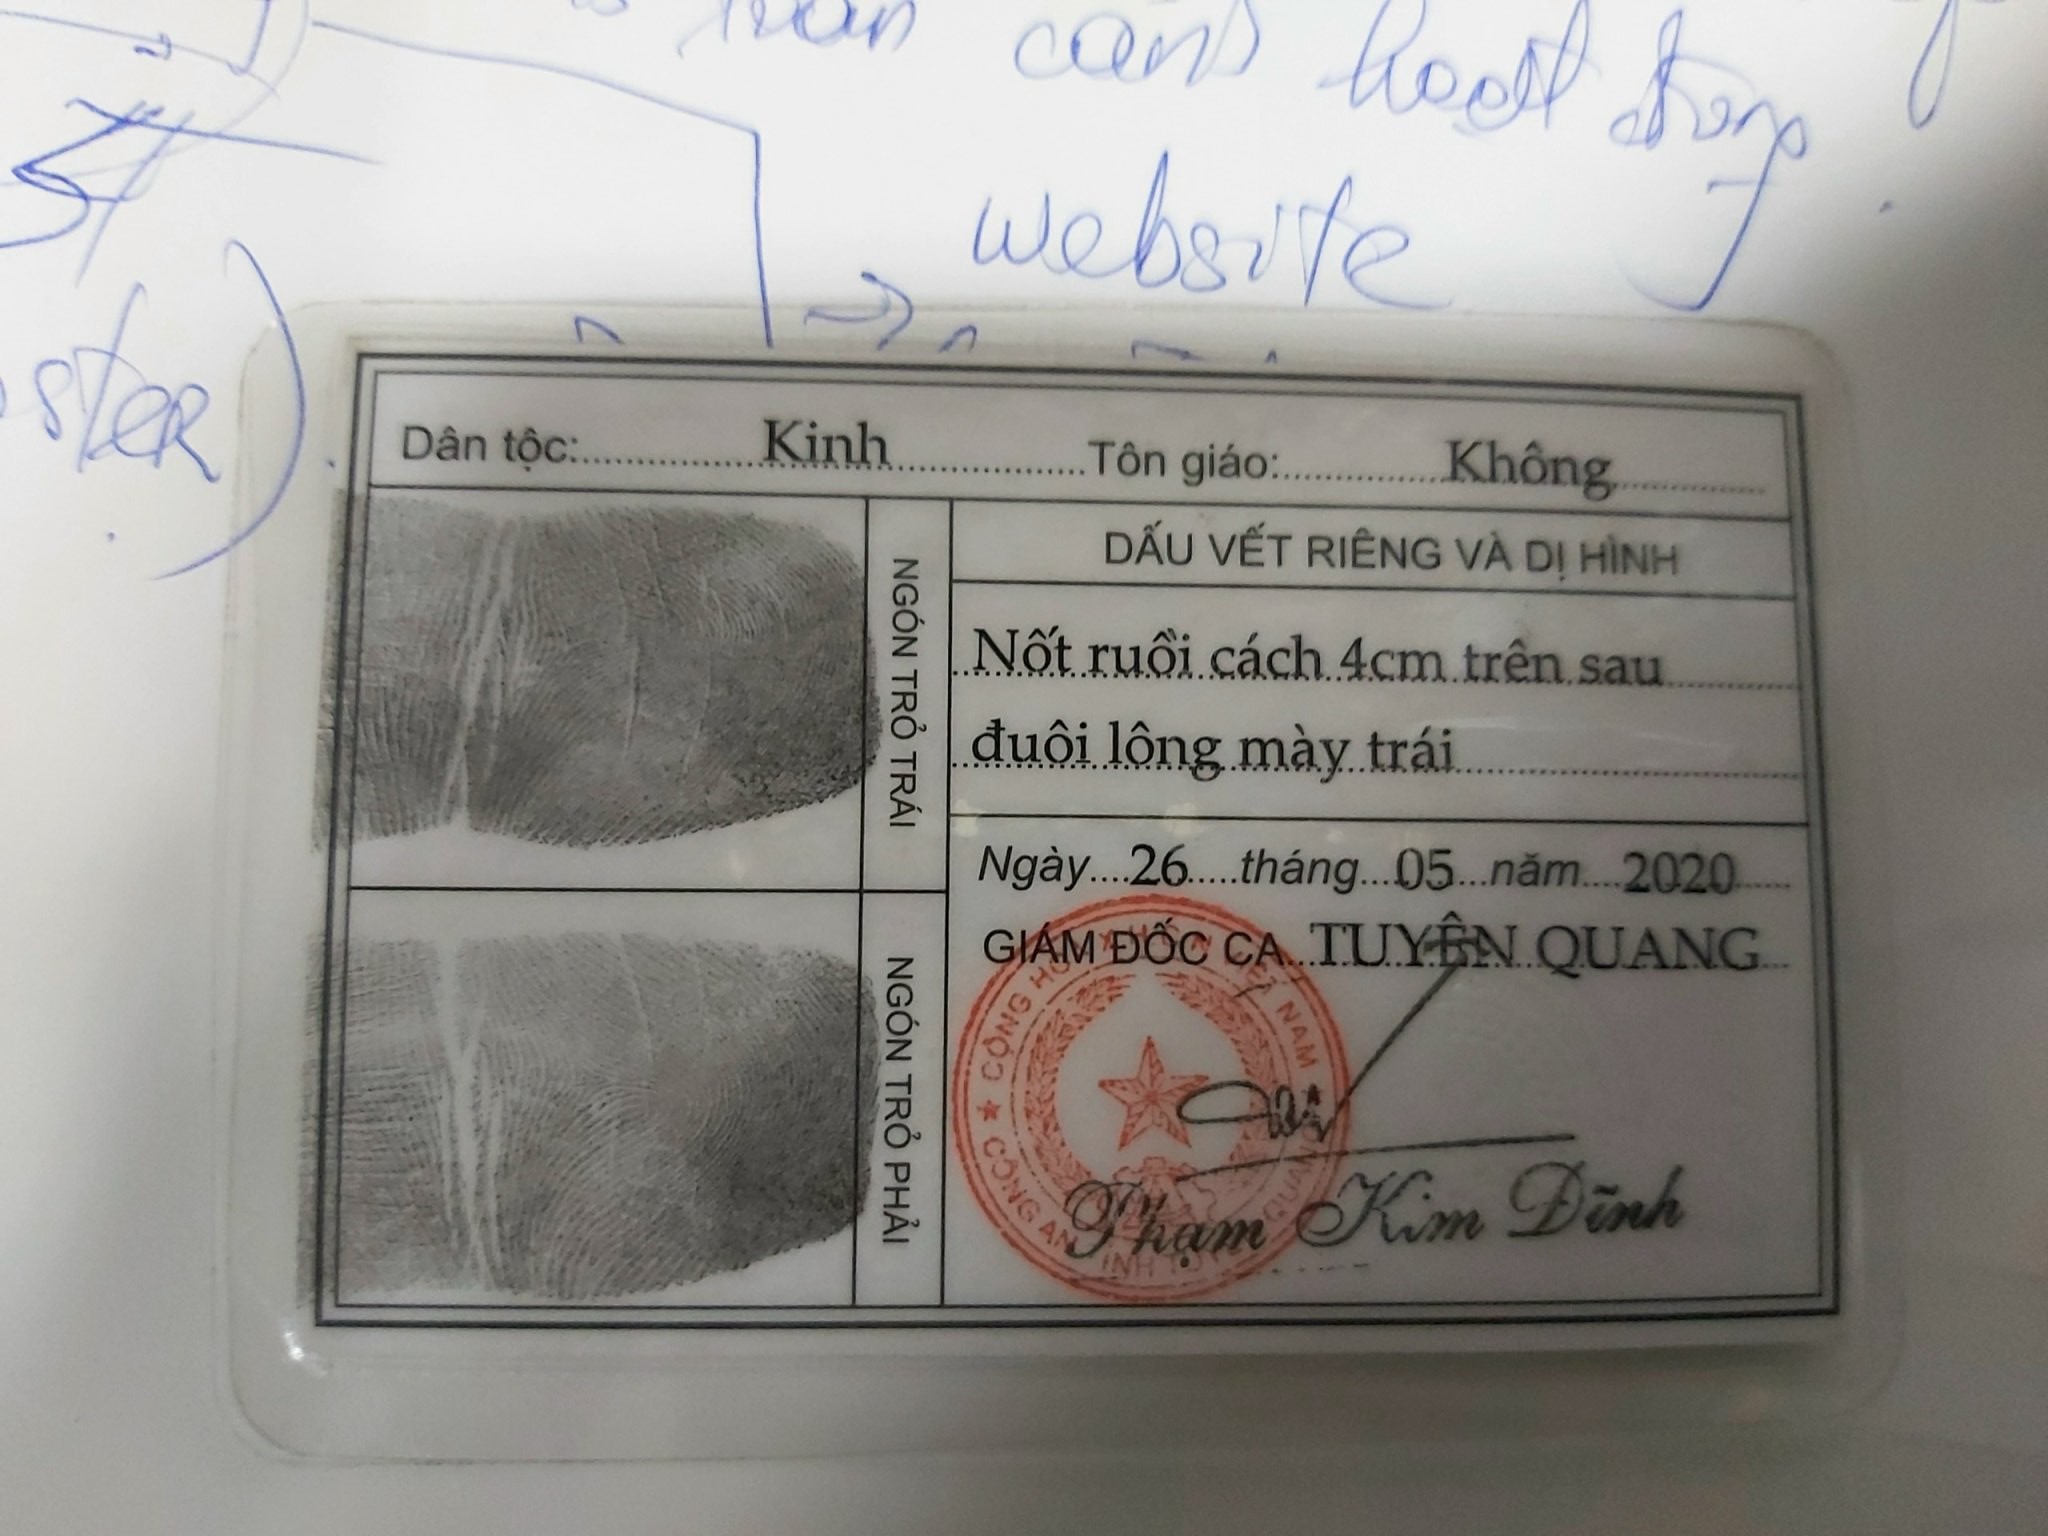 cảnh hoạt động
website
ster)
Dân tộc: Kinh Tôn giáo: Không
NGÓN TRỎ TRÁI
DẤU VẾT RIÊNG VÀ DỊ HÌNH
Nốt ruồi cách 4cm trên sau
đuôi lông mày trái
NGÓN TRỎ PHẢI
Ngày 26 tháng 05 năm 2020
GIÁM ĐỐC CA TUYÊN QUANG
CỘNG HÒA VIỆT NAM
CÔNG AN TỈNH QUANG
Phạm Kim Đĩnh